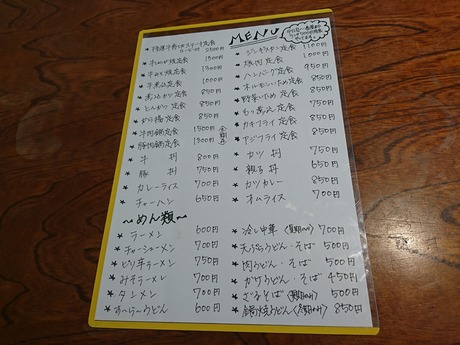 MENU
牛しょうが焼定食 1500円
牛みそ焼定食 1300円
牛煮込定食 1000円
煮込かつ定食 850円
とんかつ定食 850円
から揚定食 850円
牛肉鍋定食 1500円
豚肉鍋定食 1300円
牛丼 800円
豚丼 750円
カレーライス 700円
チャーハン 650円
～めん類～
ラーメン 600円
チャーシューメン 700円
ピリ辛ラーメン 750円
みそラーメン 700円
タンメン 700円
すーらーうどん 600円
ジンギスカン定食 1100円
豚肉定食 1000円
ハンバーグ定食 900円
ホルモンいため定食 850円
野菜いため定食 850円
もつ煮込定食 750円
カキフライ定食 850円
アジフライ定食 850円
カツ丼 750円
親子丼 650円
カツカレー 850円
オムライス 700円
冷し中華（夏期のみ） 700円
天ぷらうどん・そば 500円
肉うどん・そば 500円
かけうどん・そば 450円
ざるそば（夏期のみ） 500円
鍋焼うどん（冬期のみ） 850円